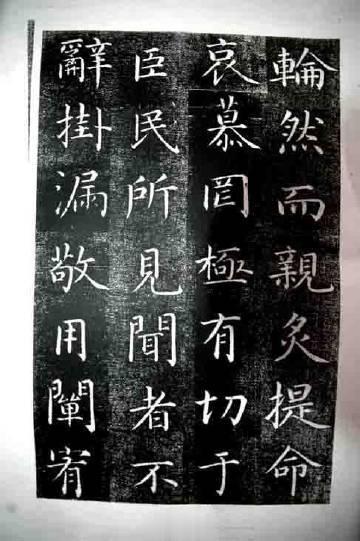 輪然而親炙提命
哀慕罔極有切于
臣民所見聞者不
辭掛漏敬用闡宥